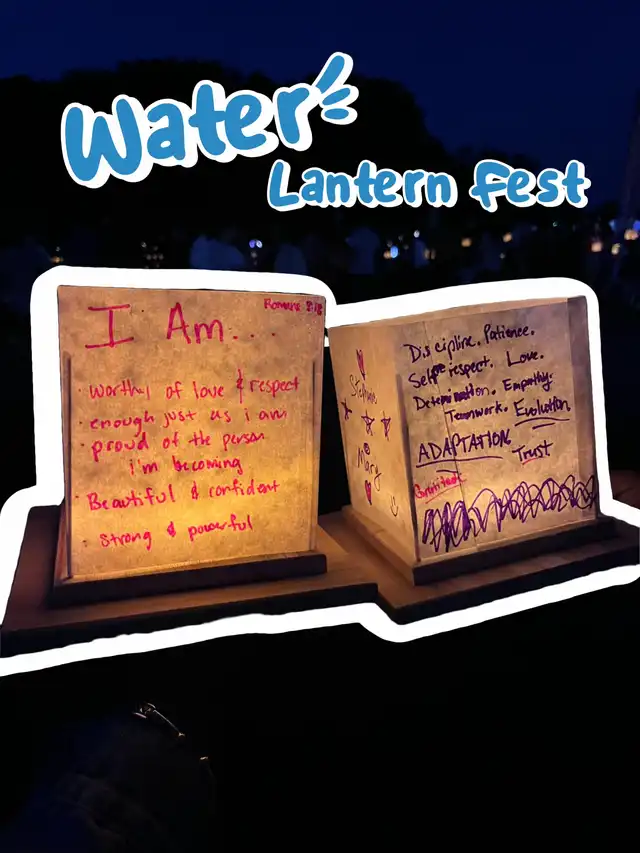 Water
Lantern Fest
I Am...
Romans 8:18
• worthy of love & respect
• enough just as i am
• proud of the person
i'm becoming
• Beautiful & confident
• strong & powerful
Stephen
Mary
Discipline. Patience.
Self respect. Love.
Determination. Empathy.
Teamwork. Evolution
ADAPTATION
Trust
Gratitude